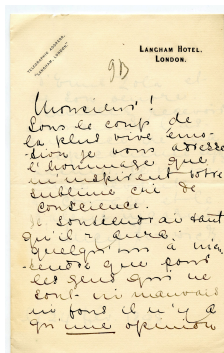 TELEGRAPHIC ADDRESS,
"LANGHAM, LONDON."
LANGHAM HOTEL.
LONDON.
Monsieur!
Sous le coup de
la plus vive émo-
sion je vous adresse
l'hommage que
m'inspirent votre
sublime cri de
conscience.
Je soutiendrai tant
qu'il y aura
quelqu'un à
que pour
les gens qui ne
sont ni mauvais
ni fous il n'y a
qu'une opinion